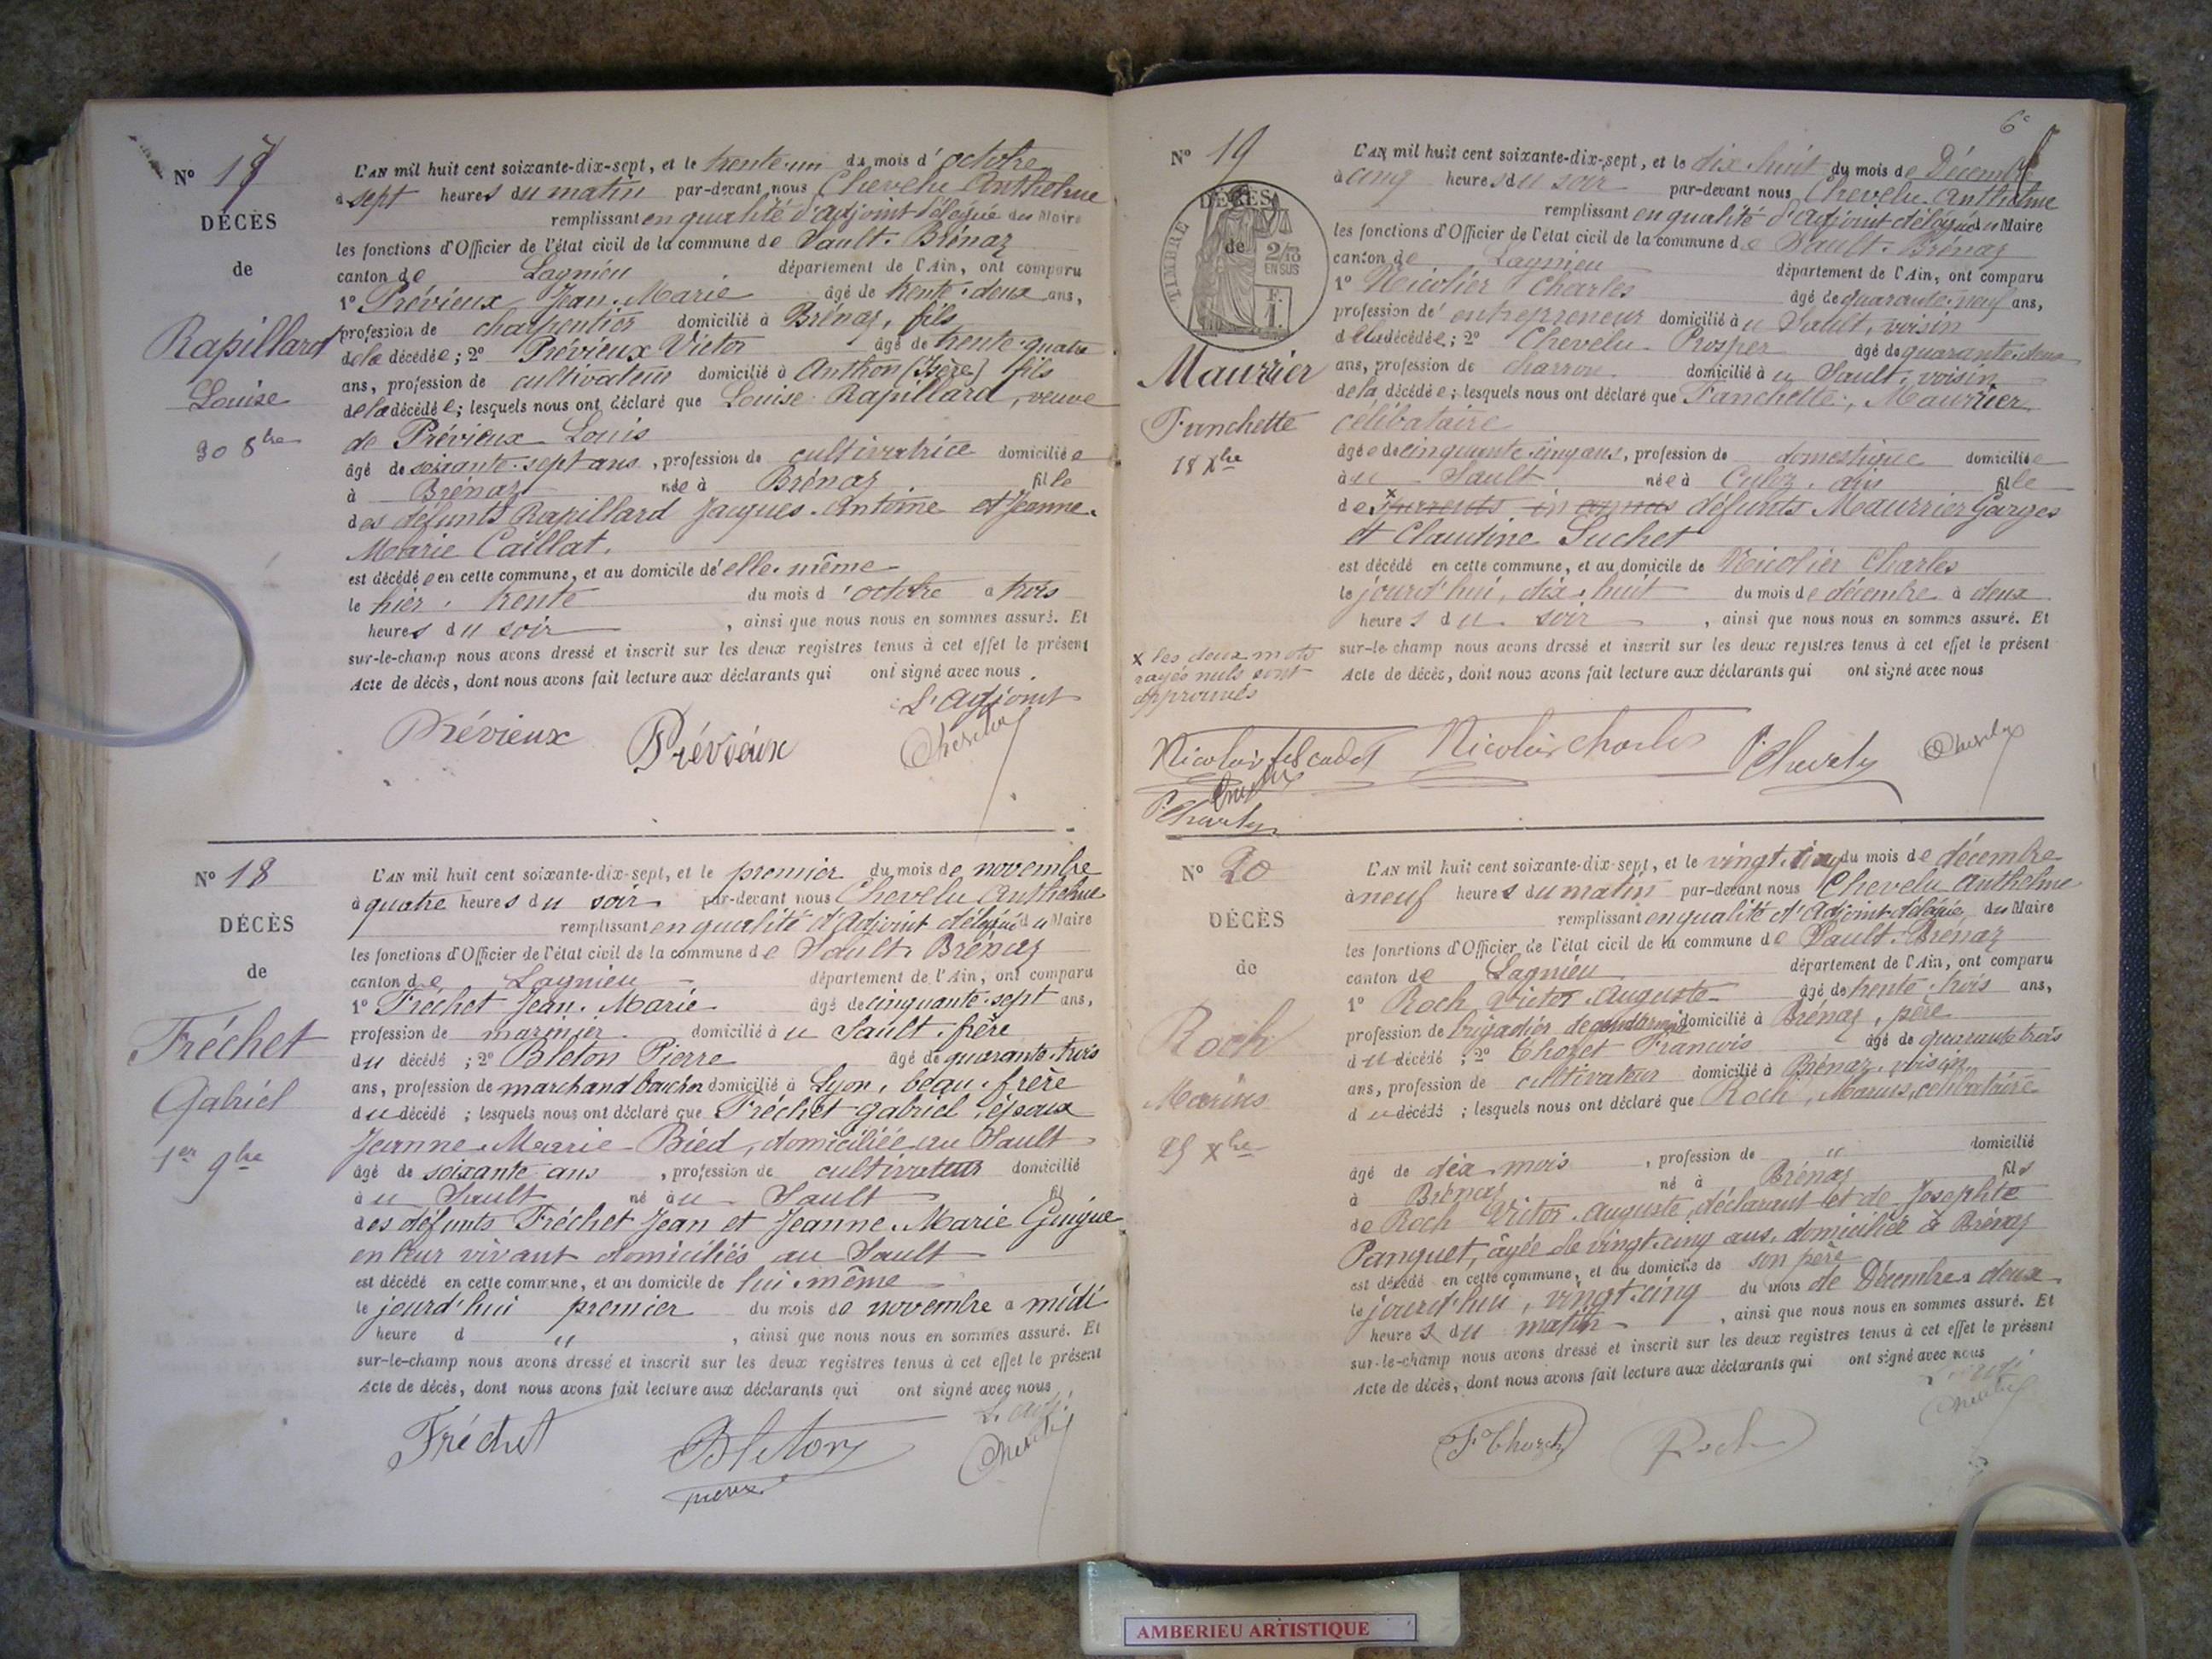 N° 17
DÉCÈS
de
Rapillard
Louise
30 8bre
L'AN mil huit cent soixante-dix-sept, et le trente-un du mois d'octobre
à sept heures du matin par-devant nous Chevelu Anthelme
remplissant en qualité d'adjoint délégué du Maire
les fonctions d'Officier de l'état civil de la commune de Sault-Brénaz
canton de Lagnieu département de l'Ain, ont comparu
1° Prévieux Jean-Marie âgé de trente-deux ans,
profession de charpentier domicilié à Brénaz, fils
de la décédée; 2° Prévieux Victor âgé de trente-quatre
ans, profession de cultivateur domicilié à Anthon (Isère) fils
de la décédée; lesquels nous ont déclaré que Louise Rapillard, veuve
de Prévieux Louis
âgé de soixante-sept ans, profession de cultivatrice domiciliée
à Brénaz née à Brénaz fille
des défunts Rapillard Jacques-Antoine et Jeanne-
Marie Caillat.
est décédée en cette commune, et au domicile d'elle-même
le hier, trente du mois d'octobre à trois
heures du soir, ainsi que nous nous en sommes assuré. Et
sur-le-champ nous avons dressé et inscrit sur les deux registres tenus à cet effet le présent
Acte de décès, dont nous avons fait lecture aux déclarants qui ont signé avec nous.
L'adjoint
Prévieux Prévieux Chevelu
N° 18
DÉCÈS
de
Fréchet
Gabriel
1er 9bre
L'AN mil huit cent soixante-dix-sept, et le premier du mois de novembre
à quatre heures du soir par-devant nous Chevelu Anthelme
remplissant en qualité d'Adjoint délégué du Maire
les fonctions d'Officier de l'état civil de la commune de Sault-Brénaz
canton de Lagnieu département de l'Ain, ont comparu
1° Fréchet Jean-Marie âgé de cinquante-sept ans,
profession de marinier domicilié à u Sault, frère
du décédé; 2° Bleton Pierre âgé de quarante-trois
ans, profession de marchand boucher domicilié à Lyon, beau-frère
du décédé; lesquels nous ont déclaré que Fréchet gabriel, époux
Jeanne-Marie Bied, domiciliée au Sault
âgé de soixante ans, profession de cultivateur domicilié
à u Sault né à u Sault fil
des défunts Fréchet Jean et Jeanne-Marie Guigue
en leur vivant domiciliés au Sault
est décédé en cette commune, et au domicile de lui-même
le jourd'hui premier du mois de novembre à midi
heure d ", ainsi que nous nous en sommes assuré. Et
sur-le-champ nous avons dressé et inscrit sur les deux registres tenus à cet effet le présent
Acte de décès, dont nous avons fait lecture aux déclarants qui ont signé avec nous
L'adj.
Fréchet Bleton Chevelu
Pierre
6e
N° 19
DÉCÈS
de
TIMBRE
2/10
EN SUS
F.
1.
Maurier
Fanchette
18 Xbre
L'AN mil huit cent soixante-dix-sept, et le dix-huit du mois de Décembre
à cinq heures du soir par-devant nous Chevelu Anthelme
remplissant en qualité d'Adjoint délégué du Maire
les fonctions d'Officier de l'état civil de la commune de Sault-Brénaz
canton de Lagnieu département de l'Ain, ont comparu
1° Nicolier Charles âgé de quarante-neuf ans,
profession d'entrepreneur domicilié à u Sault, voisin
de la décédée; 2° Chevelu Prosper âgé de quarante-deux
ans, profession de charron domicilié à u Sault, voisin
de la décédée; lesquels nous ont déclaré que Fanchette, Maurrier
célibataire
âgée de cinquante-cinq ans, profession de domestique domiciliée
à u Sault née à Culoz, ain fille
de x parents inconnus défunts Maurrier Garges
et Claudine Suchet
est décédé en cette commune, et au domicile de Nicolier Charles
le jourd'hui, dix-huit du mois de décembre à deux
heures du soir, ainsi que nous nous en sommes assuré. Et
sur-le-champ nous avons dressé et inscrit sur les deux registres tenus à cet effet le présent
Acte de décès, dont nous avons fait lecture aux déclarants qui ont signé avec nous
x les deux mots
rayés nuls sont
approuvés
Nicolier fils cadet Nicolier Charles P. Chevelu Chevelu
Chevelu
P. Chevelu
N° 20
DÉCÈS
de
Roch
Marius
25 Xbre
L'AN mil huit cent soixante-dix-sept, et le vingt-cinq du mois de décembre
à neuf heures du matin par-devant nous Chevelu Anthelme
remplissant en qualité d'Adjoint délégué du Maire
les fonctions d'Officier de l'état civil de la commune de Sault-Brénaz
canton de Lagnieu département de l'Ain, ont comparu
1° Roch Victor-Auguste âgé de trente-trois ans,
profession de brigadier de gendarmerie domicilié à Brénaz, père
du décédé; 2° Thozet Francois âgé de quarante trois
ans, profession de cultivateur domicilié à Brénaz, voisin
du décédé; lesquels nous ont déclaré que Roch, Marius, célibataire
âgé de dix mois, profession de " domicilié
à Brénaz né à Brénaz fils
de Roch Victor-Auguste, déclarant et de Josephte
Panquet, âgée de vingt-cinq ans, domiciliée à Brénaz
est décédé en cette commune, et au domicile de son père
le jourd'hui, vingt-cinq du mois de Décembre à deux
heures du matin, ainsi que nous nous en sommes assuré. Et
sur-le-champ nous avons dressé et inscrit sur les deux registres tenus à cet effet le présent
Acte de décès, dont nous avons fait lecture aux déclarants qui ont signé avec nous
L'adj.
F. Thozet Roch Chevelu
AMBERIEU ARTISTIQUE